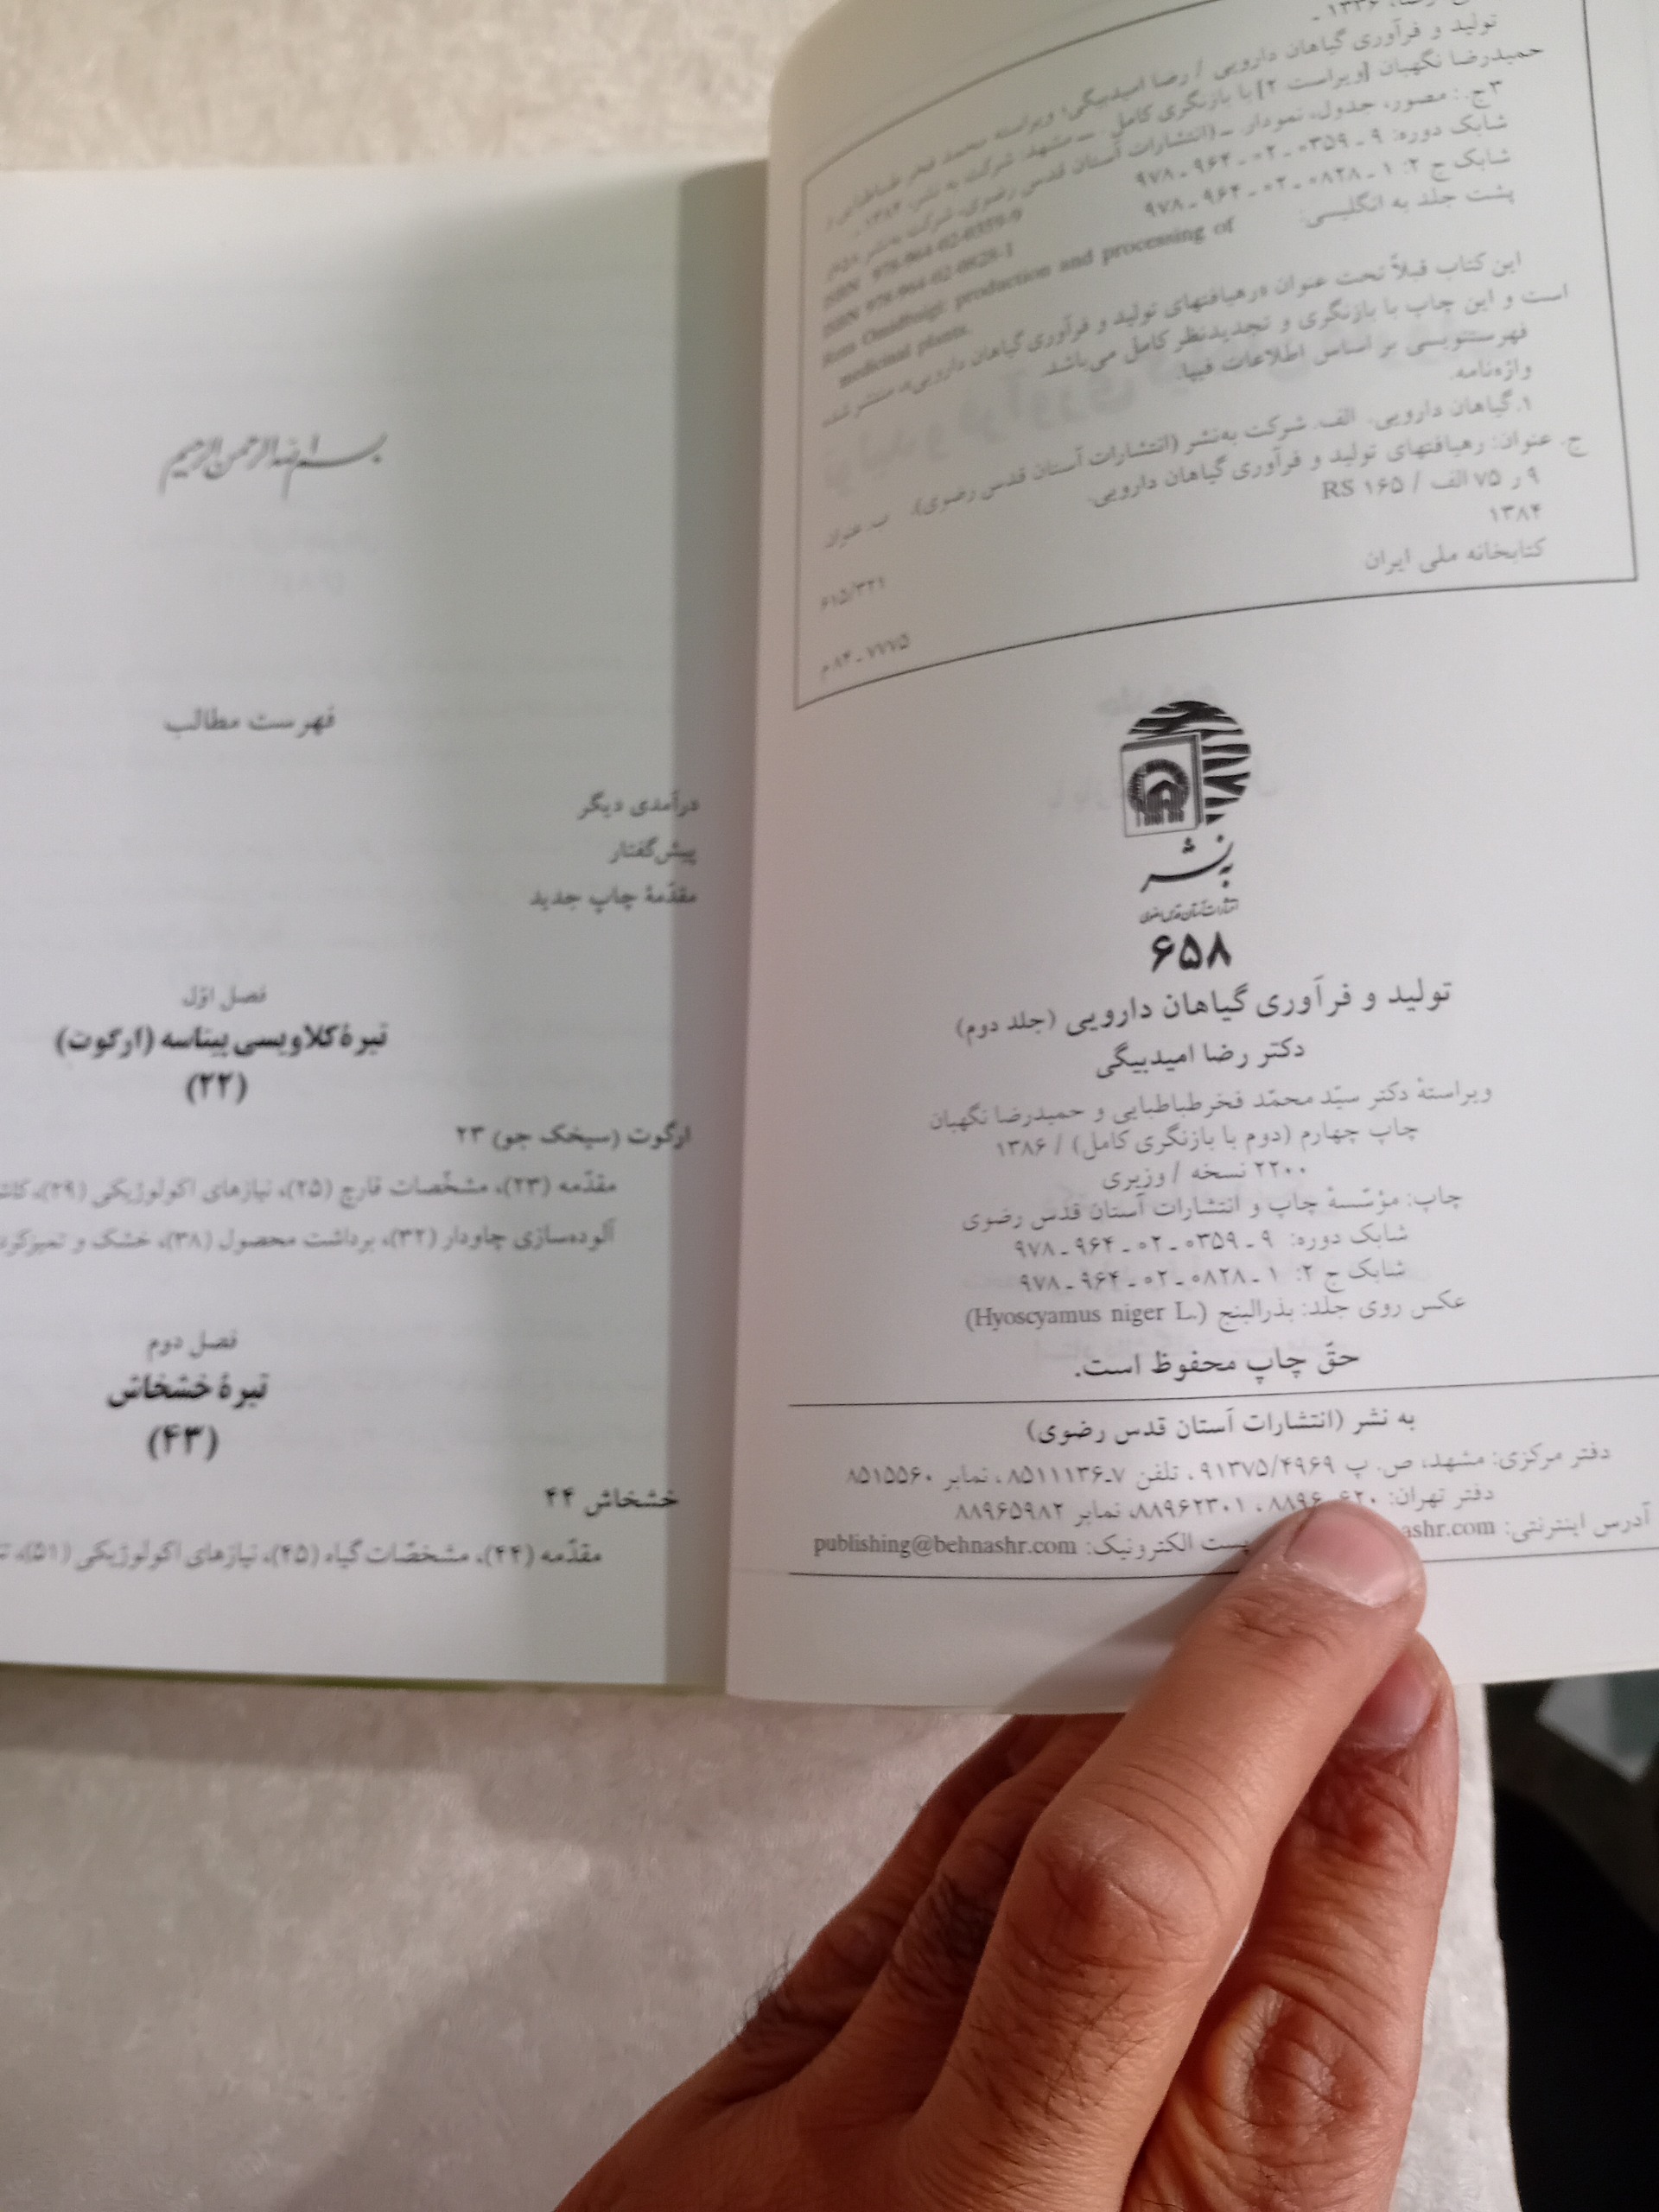 تولید و فرآوری گیاهان دارویی / رضا امیدبیگی؛ ویراسته محمد فخر طباطبایی و
حمیدرضا نگهبان [ویراست ۲] با بازنگری کامل. ـ مشهد: شرکت به نشر، ۱۳۸۴ ـ
۳ج.: مصور، جدول، نمودار. ـ (انتشارات آستان قدس رضوی، شرکت به‌نشر؛ ۶۵۸)
شابک دوره: ۹ ـ ۰۳۵۹ ـ ۰۲ ـ ۹۶۴ ـ ۹۷۸
ISBN 978-964-02-0359-9
شابک ج ۲: ۱ ـ ۰۸۲۸ ـ ۰۲ ـ ۹۶۴ ـ ۹۷۸
ISBN 978-964-02-0828-1
پشت جلد به انگلیسی:
Reza Omidbaigi: production and processing of
medicinal plants.
این کتاب قبلاً تحت عنوان «رهیافتهای تولید و فرآوری گیاهان دارویی»، منتشر شده
است و این چاپ با بازنگری و تجدیدنظر کامل می‌باشد.
فهرستنویسی بر اساس اطلاعات فیپا.
واژه‌نامه.
۱.گیاهان دارویی. الف. شرکت به‌نشر (انتشارات آستان قدس رضوی). ب. عنوان
ج. عنوان: رهیافتهای تولید و فرآوری گیاهان دارویی.
۹ ر ۷۵ الف / RS ۱۶۵
۶۱۵/۳۲۱
۱۳۸۴
کتابخانه ملی ایران
۷۷۷۵ ـ ۸۴ م
به نشر
انتشارات آستان قدس رضوی
۶۵۸
تولید و فرآوری گیاهان دارویی (جلد دوم)
دکتر رضا امیدبیگی
ویراستهٔ دکتر سیّد محمّد فخرطباطبایی و حمیدرضا نگهبان
چاپ چهارم (دوم با بازنگری کامل) / ۱۳۸۶
۲۲۰۰ نسخه / وزیری
چاپ: مؤسّسهٔ چاپ و انتشارات آستان قدس رضوی
شابک دوره: ۹ ـ ۰۳۵۹ ـ ۰۲ ـ ۹۶۴ ـ ۹۷۸
شابک ج ۲: ۱ ـ ۰۸۲۸ ـ ۰۲ ـ ۹۶۴ ـ ۹۷۸
عکس روی جلد: بذرالبنج (Hyoscyamus niger L.)
حقّ چاپ محفوظ است.
به نشر (انتشارات آستان قدس رضوی)
دفتر مرکزی: مشهد، ص. پ ۹۱۳۷۵/۴۹۶۹ ، تلفن ۷ـ۸۵۱۱۱۳۶ ، نمابر ۸۵۱۵۵۶۰
دفتر تهران: ۸۸۹۶۲۳۰۱، نمابر ۸۸۹۶۵۹۸۲
آدرس اینترنتی: ashr.com پست الکترونیک: publishing@behnashr.com
بسم الله الرحمن الرحیم
فهرست مطالب
درآمدی دیگر
پیش‌گفتار
مقدّمهٔ چاپ جدید
فصل اوّل
تیرهٔ کلاویسی پیتاسه (ارگوت)
(۲۲)
ارگوت (سیخک جو) ۲۳
مقدّمه (۲۳)، مشخّصات قارچ (۲۵)، نیازهای اکولوژیکی (۲۹)،
آلوده‌سازی چاودار (۳۲)، برداشت محصول (۳۸)، خشک و
فصل دوم
تیرهٔ خشخاش
(۴۳)
خشخاش ۴۴
مقدّمه (۴۴)، مشخصّات گیاه (۴۵)، نیازهای اکولوژیکی (۵۱)،